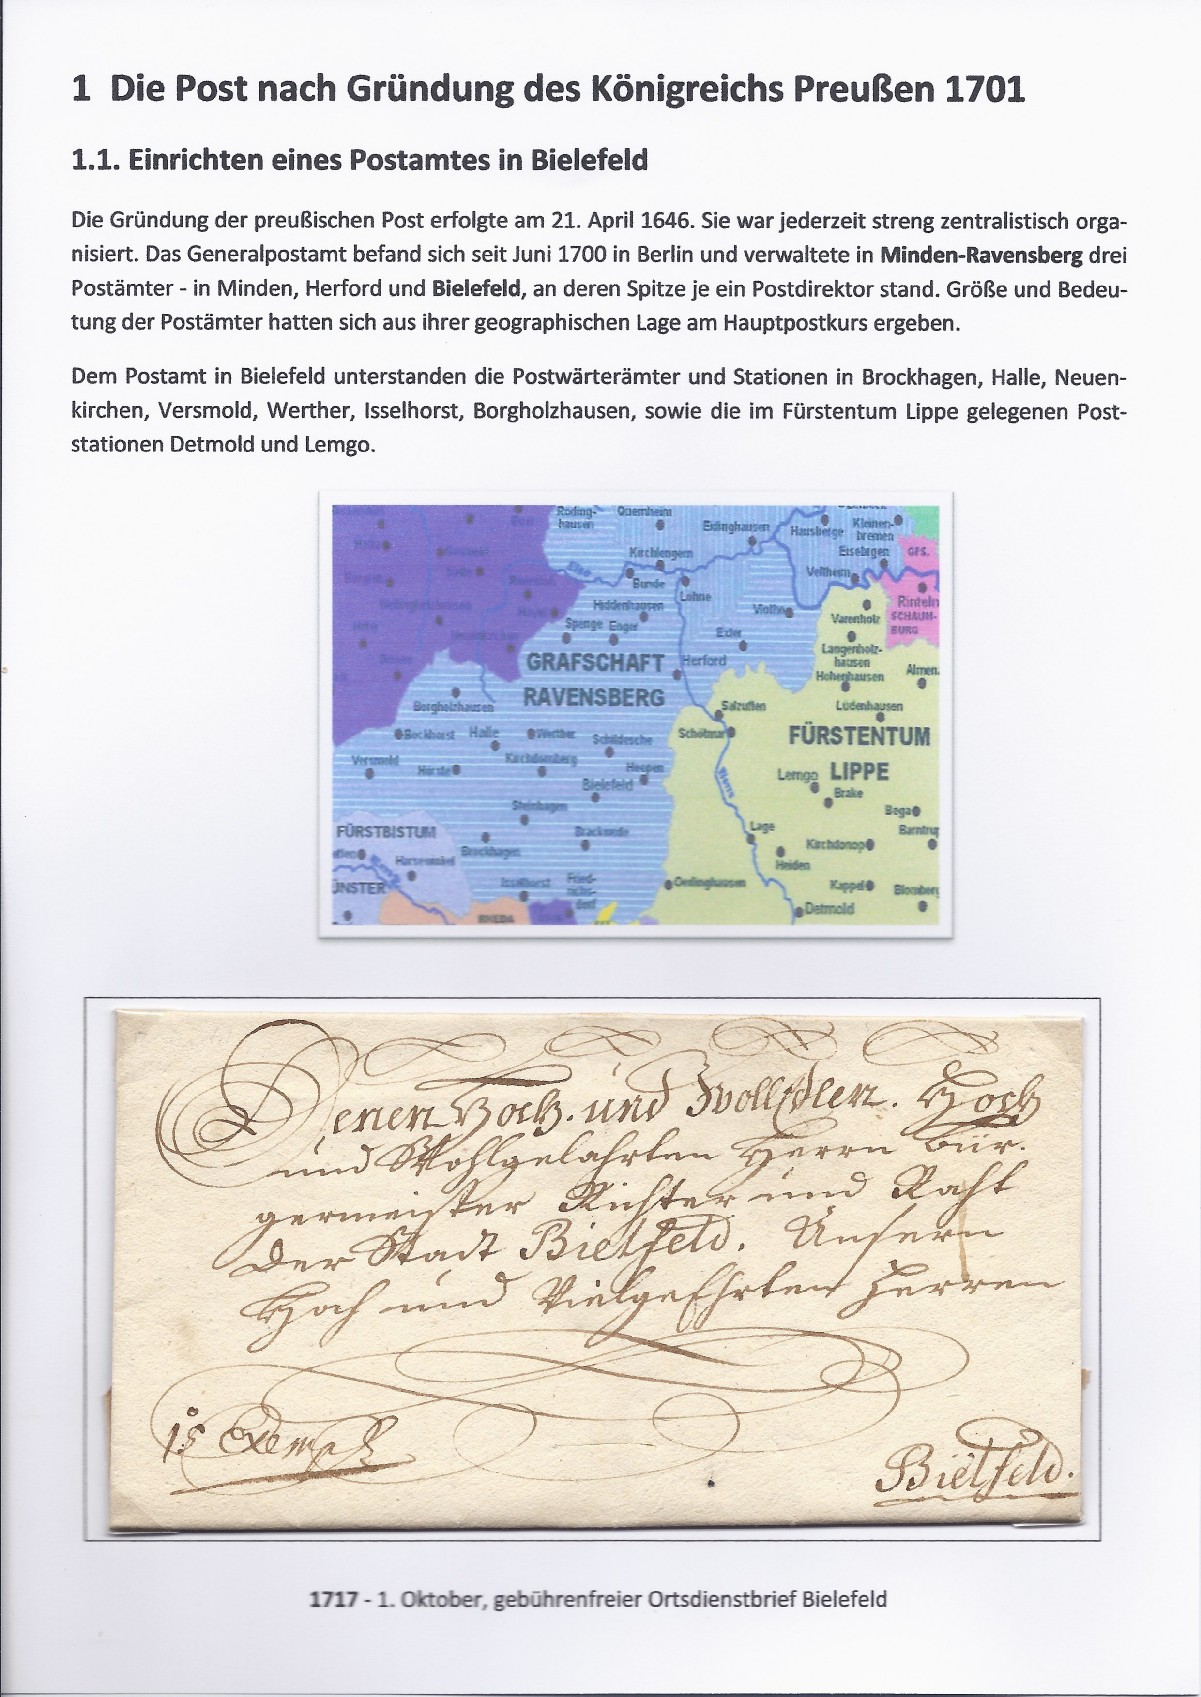 1 Die Post nach Gründung des Königreichs Preußen 1701
1.1. Einrichten eines Postamtes in Bielefeld
Die Gründung der preußischen Post erfolgte am 21. April 1646. Sie war jederzeit streng zentralistisch orga-
nisiert. Das Generalpostamt befand sich seit Juni 1700 in Berlin und verwaltete in Minden-Ravensberg drei
Postämter - in Minden, Herford und Bielefeld, an deren Spitze je ein Postdirektor stand. Größe und Bedeu-
tung der Postämter hatten sich aus ihrer geographischen Lage am Hauptpostkurs ergeben.
Dem Postamt in Bielefeld unterstanden die Postwärterämter und Stationen in Brockhagen, Halle, Neuen-
kirchen, Versmold, Werther, Isselhorst, Borgholzhausen, sowie die im Fürstentum Lippe gelegenen Post-
stationen Detmold und Lemgo.
Röding-
hausen
Quernheim
Eidinghausen
Hausberge
Kleinen-
bremen
Eisbergen
GFS.
Kirchlengern
Else
Veltheim
Bünde
Löhne
Rinteln
SCHAUM-
BURG
Hiddenhausen
Vlotho
Varenholz
Spenge
Enger
Exter
Langenholz-
hausen
GRAFSCHAFT
RAVENSBERG
Herford
Hohenhausen
Almen.
Borgholzhausen
Salzuflen
Lüdenhausen
Bockhorst
Halle
Werther
Schildesche
Schötmar
FÜRSTENTUM
LIPPE
Versmold
Hörste
Kirchdornberg
Heepen
Bielefeld
Lemgo
Brake
Steinhagen
Bega
FÜRSTBISTUM
Brackwede
Lage
Barntrup
Harsewinkel
Brockhagen
Kirchdonop
Heiden
ÜNSTER
Isselhorst
Fried-
richs-
dorf
Oerlinghausen
Kappel
Blomberg
RHEDA
Detmold
Denen Hoch. und WollEdlen. Hoch
und Wohlgelahrten Herrn Bür.
germeister Richter und Raht
der Stadt Bielfeld. Unsern
Hoch und VielgeEhrten Herren
Exempl
Bielfeld.
1717 - 1. Oktober, gebührenfreier Ortsdienstbrief Bielefeld